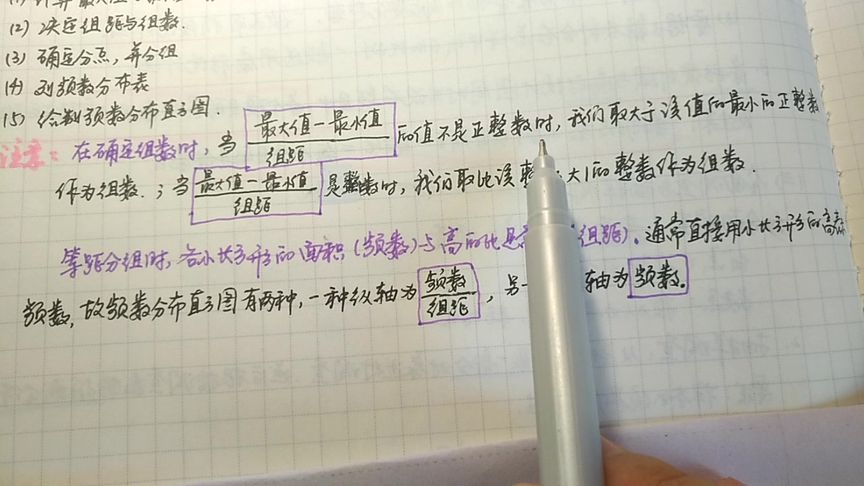 (2) 决定组距与组数.
(3) 确定分点，并分组
(4) 列频数分布表
(5) 绘制频数分布直方图.
注意：在确定组数时，当 最大值－最小值 / 组距 的值不是正整数时，我们取大于该值的最小的正整数
作为组数.；当 最大值－最小值 / 组距 是整数时，我们取比该整 大1的整数作为组数.
等距分组时，各小长方形的面积(频数)与高的比是 (组距)。通常直接用小长方形的高表
频数，故频数分布直方图有两种，一种纵轴为 频数 / 组距，另一 轴为 频数。